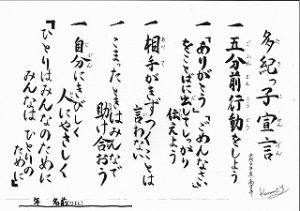 多紀っ子宣言
一 五分前行動をしよう
一 「ありがとう」「ごめんなさい」
をことばに出してしっかり
伝えよう
一 相手がきずつくことは
言わない
一 こまったときはみんなで
助け合おう
一 自分にきびしく
人にやさしく
『ひとりはみんなのために
みんなは ひとりの
ために』
年 名前